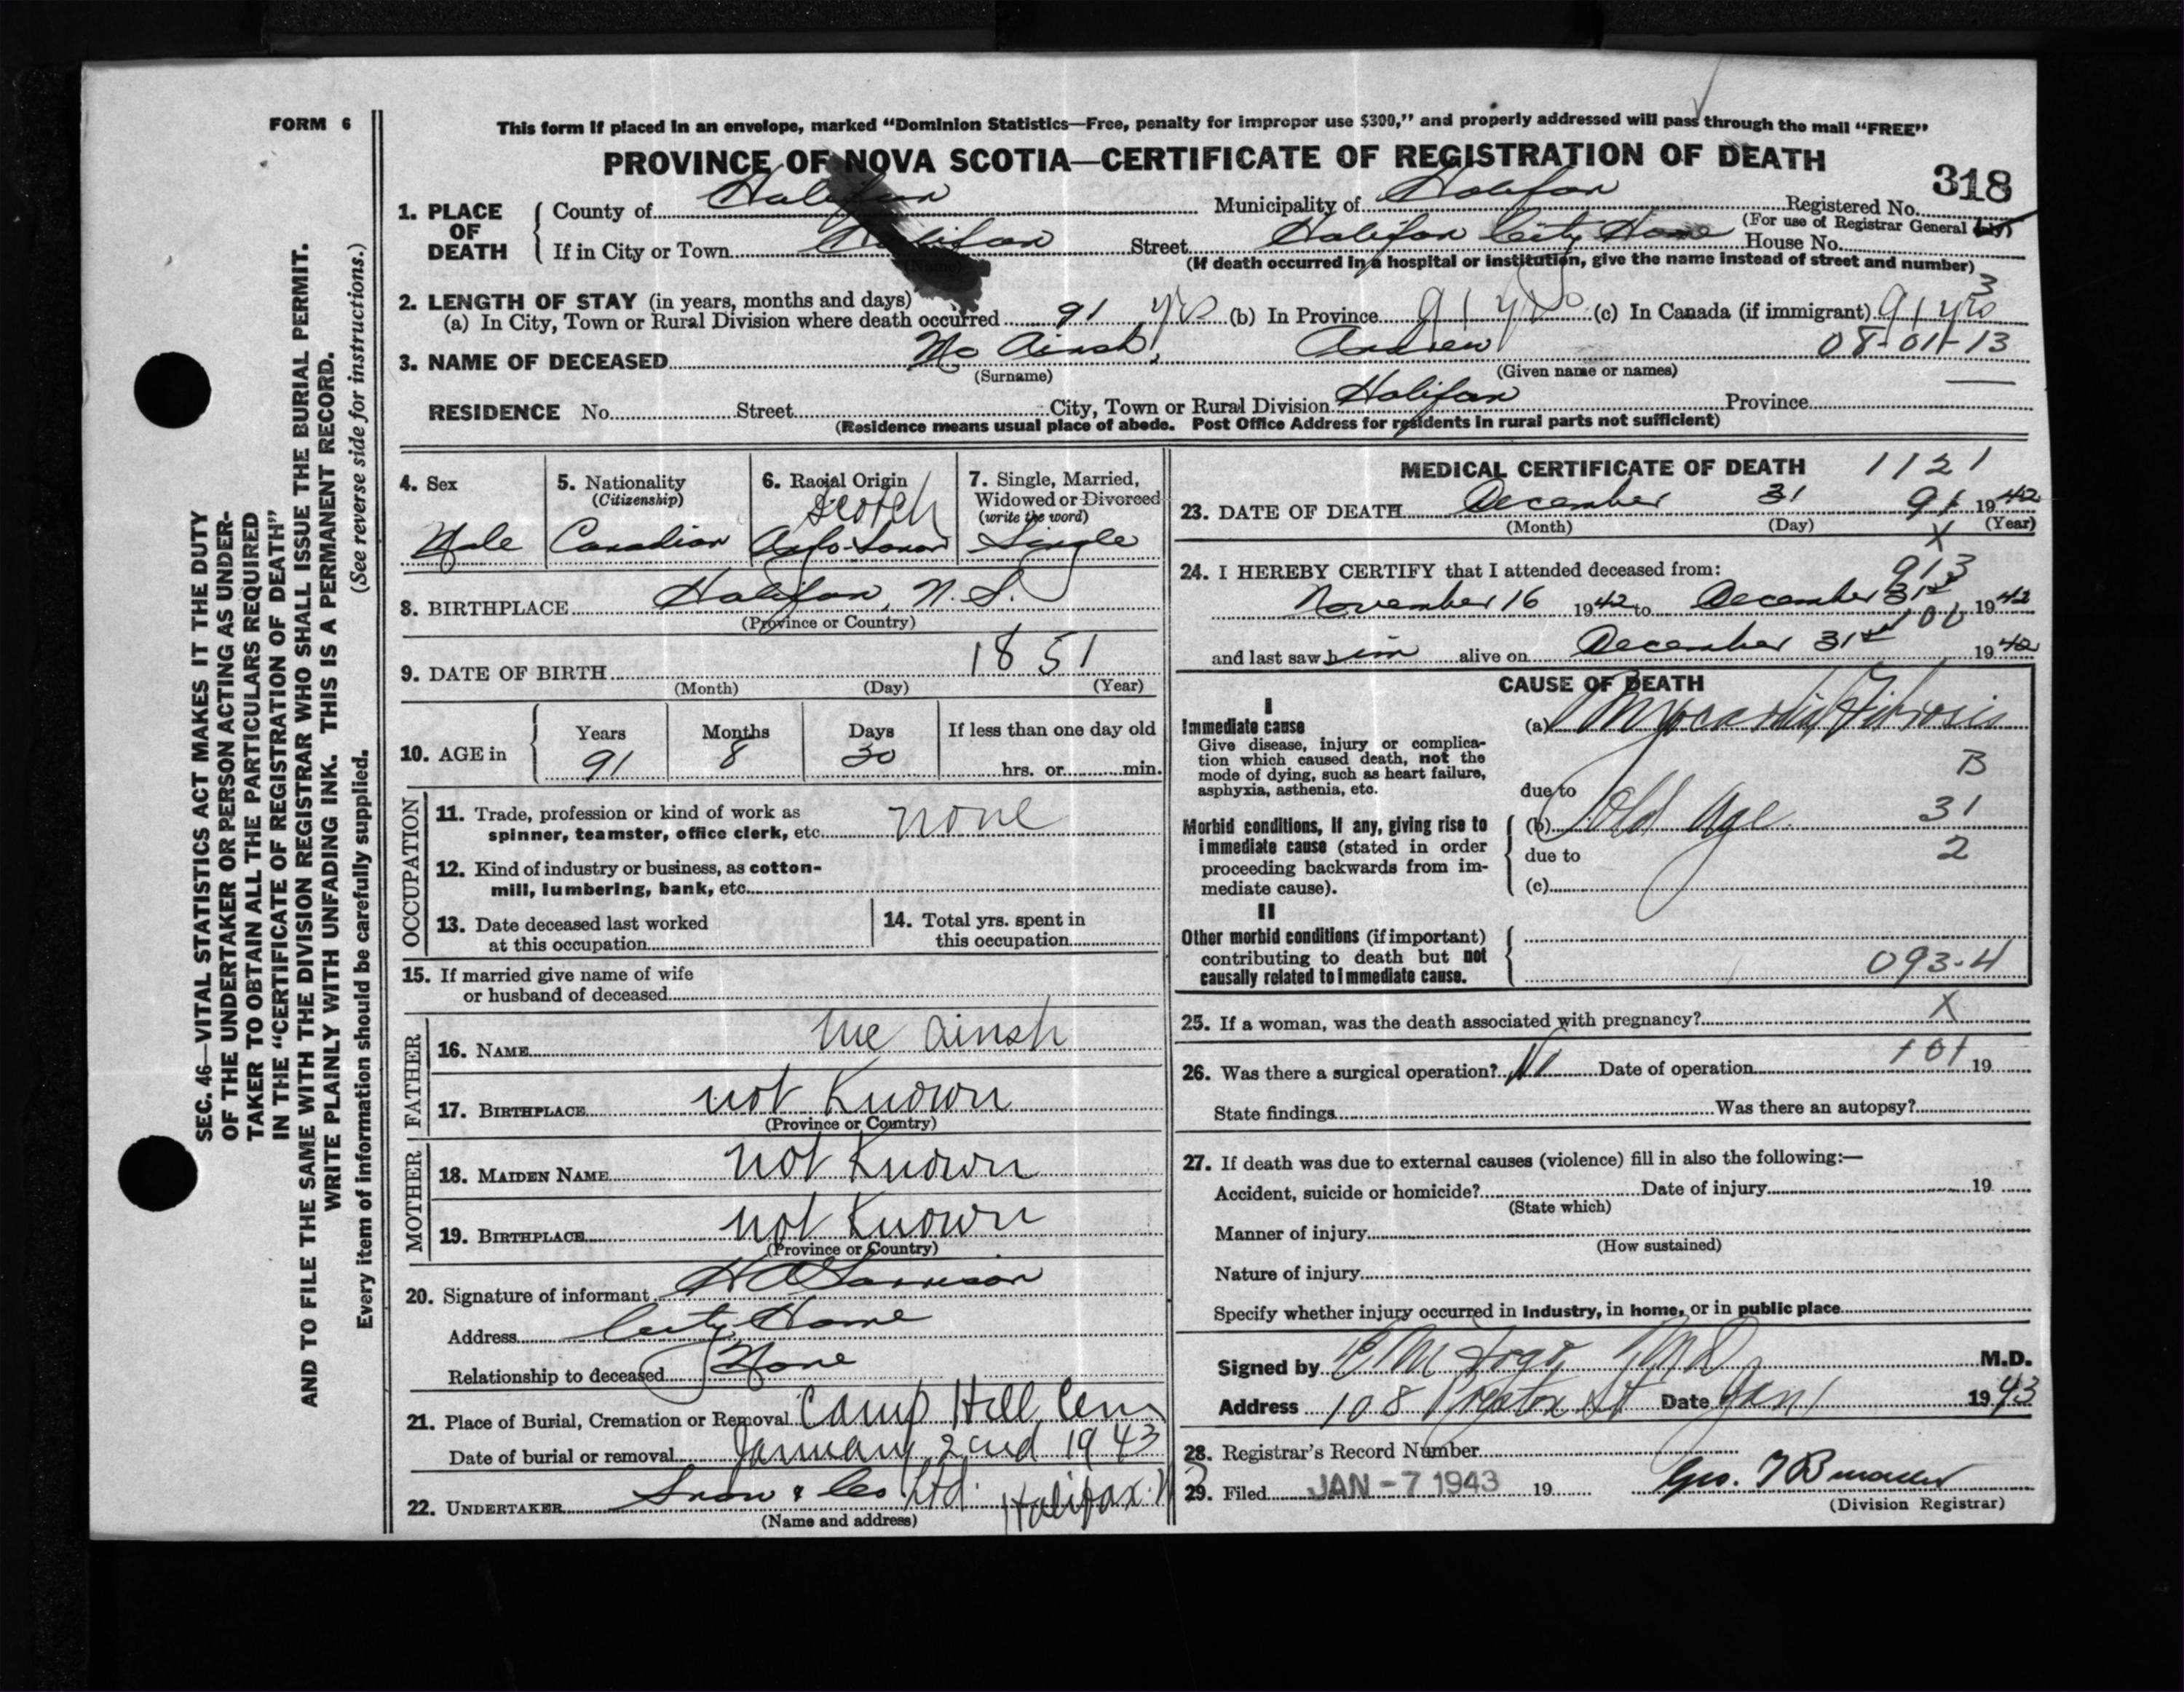 FORM 6
This form if placed in an envelope, marked “Dominion Statistics—Free, penalty for improper use $300,” and properly addressed will pass through the mail “FREE”
PROVINCE OF NOVA SCOTIA—CERTIFICATE OF REGISTRATION OF DEATH
318
1. PLACE OF DEATH { County of Halifax Municipality of Halifax Registered No.
(For use of Registrar General only)
If in City or Town Halifax Street Halifax City Home House No.
(Name) (If death occurred in a hospital or institution, give the name instead of street and number)
3
2. LENGTH OF STAY (in years, months and days)
(a) In City, Town or Rural Division where death occurred 91 yrs (b) In Province 91 yrs (c) In Canada (if immigrant) 91 yrs
3. NAME OF DECEASED Mc Ainsh, Andrew 08-01-13
(Surname) (Given name or names)
RESIDENCE No. Street City, Town or Rural Division Halifax Province
(Residence means usual place of abode. Post Office Address for residents in rural parts not sufficient)
4. Sex
Male
5. Nationality
(Citizenship)
Canadian
6. Racial Origin
Scotch
7. Single, Married,
Widowed or Divorced
(write the word)
Single
8. BIRTHPLACE Halifax, N. S.
(Province or Country)
9. DATE OF BIRTH 1851
(Month) (Day) (Year)
10. AGE in { Years Months Days If less than one day old
91 8 30 hrs. or min.
OCCUPATION
11. Trade, profession or kind of work as
spinner, teamster, office clerk, etc. none
12. Kind of industry or business, as cotton-
mill, lumbering, bank, etc.
13. Date deceased last worked
at this occupation
14. Total yrs. spent in
this occupation
15. If married give name of wife
or husband of deceased
FATHER
16. NAME Mc Ainsh
17. BIRTHPLACE not Known
(Province or Country)
MOTHER
18. MAIDEN NAME not Known
19. BIRTHPLACE not Known
(Province or Country)
20. Signature of informant
Address City Home
Relationship to deceased None
21. Place of Burial, Cremation or Removal Camp Hill Cem
Date of burial or removal January 2nd 1943
22. UNDERTAKER Snow & Co Ltd. Halifax N
(Name and address)
MEDICAL CERTIFICATE OF DEATH 1121
23. DATE OF DEATH December 31 91 1942
(Month) (Day) (Year)
X
24. I HEREBY CERTIFY that I attended deceased from:
913
November 16 1942 to December 31st 1942
and last saw him alive on December 31st 1942
CAUSE OF DEATH
I
Immediate cause
Give disease, injury or complica-
tion which caused death, not the
mode of dying, such as heart failure,
asphyxia, asthenia, etc.
(a) Myocardial Fibrosis
B
due to
Morbid conditions, if any, giving rise to
immediate cause (stated in order
proceeding backwards from im-
mediate cause).
(b) Old Age 31
due to 2
(c)
II
Other morbid conditions (if important)
contributing to death but not
causally related to immediate cause.
093-4
25. If a woman, was the death associated with pregnancy? X
26. Was there a surgical operation? Date of operation 101 19
State findings Was there an autopsy?
27. If death was due to external causes (violence) fill in also the following:—
Accident, suicide or homicide? Date of injury 19
(State which)
Manner of injury
(How sustained)
Nature of injury
Specify whether injury occurred in Industry, in home, or in public place
Signed by M.D.
Address 108 St Date Jan 1 1943
28. Registrar's Record Number
29. Filed JAN -7 1943 19 Geo.
(Division Registrar)
SEC. 46—VITAL STATISTICS ACT MAKES IT THE DUTY
OF THE UNDERTAKER OR PERSON ACTING AS UNDER-
TAKER TO OBTAIN ALL THE PARTICULARS REQUIRED
IN THE “CERTIFICATE OF REGISTRATION OF DEATH”
AND TO FILE THE SAME WITH THE DIVISION REGISTRAR WHO SHALL ISSUE THE BURIAL PERMIT.
WRITE PLAINLY WITH UNFADING INK. THIS IS A PERMANENT RECORD.
Every item of information should be carefully supplied. (See reverse side for instructions.)